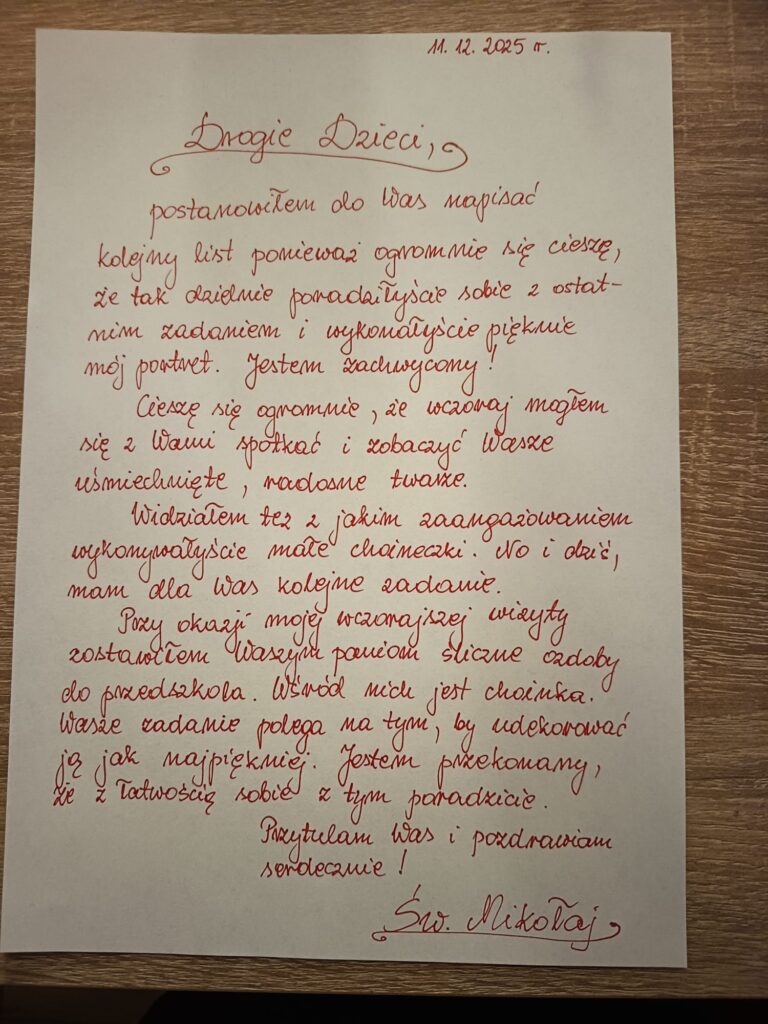 11. 12. 2025 r.
Drogie Dzieci,
postanowiłem do Was napisać
kolejny list ponieważ ogromnie się cieszę,
że tak dzielnie poradziłyście sobie z ostat-
nim zadaniem i wykonałyście pięknie
mój portret. Jestem zachwycony!
Cieszę się ogromnie, że wczoraj mogłem
się z Wami spotkać i zobaczyć Wasze
uśmiechnięte, radosne twarze.
Widziałem też z jakim zaangażowaniem
wykonywałyście małe choineczki. No i dziś,
mam dla Was kolejne zadanie.
Przy okazji mojej wczorajszej wizyty
zostawiłem Waszym paniom śliczne ozdoby
do przedszkola. Wśród nich jest choinka.
Wasze zadanie polega na tym, by udekorować
ją jak najpiękniej. Jestem przekonany,
że z łatwością sobie z tym poradzicie.
Przytulam Was i pozdrawiam
serdecznie!
Św. Mikołaj